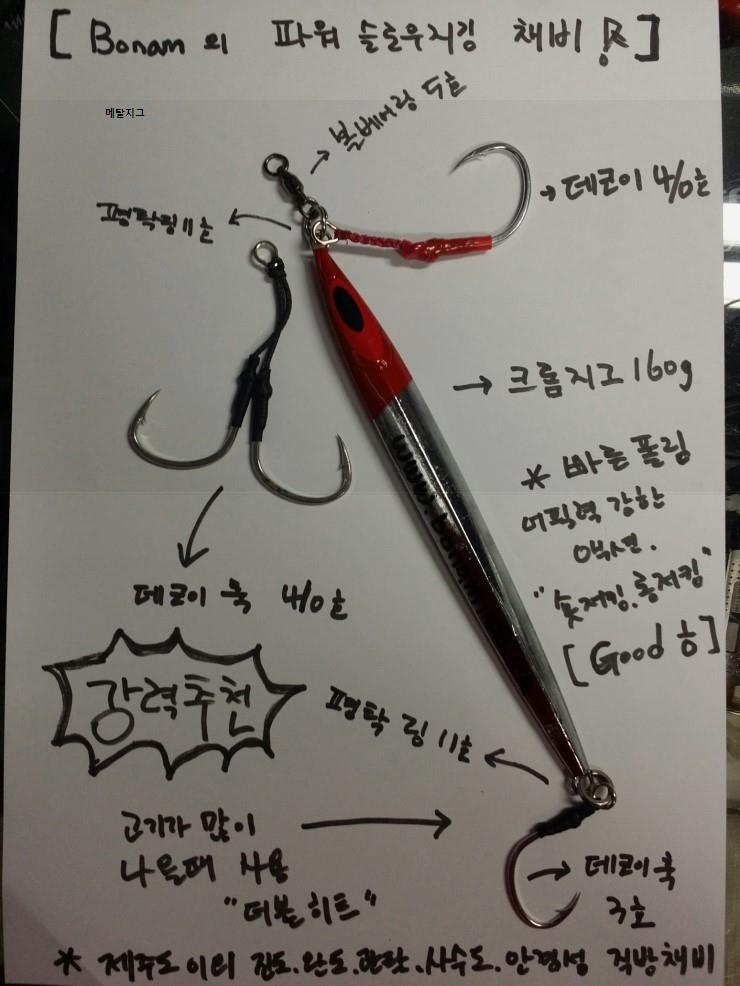 [ Bonam 의 파워 슬로우지깅 채비 ]
메탈지그
볼베어링 5호
데코이 4/0호
평탁링 11호
크롬지그 160g
* 빠른 폴링
어필력 강한
액션.
"숏저킹.롱저킹"
[ Good 含 ]
데코이 훅 4/0호
강력추천
평탁 링 11호
고기가 많이
나올때 사용
"더블히트"
데코이 훅
3호
* 제주도 이외 진도.완도.관탈.사수도.안경섬 직방채비